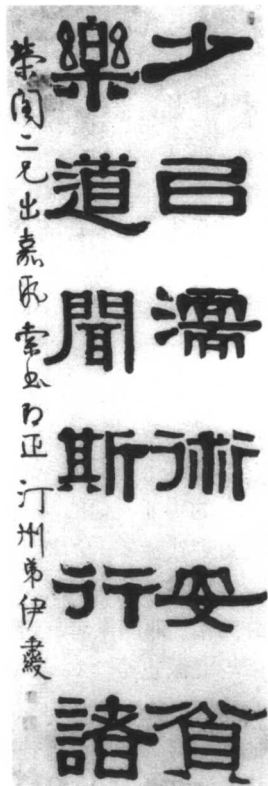 少㠯濡術安貧
樂道聞斯行諸
榮閣二兄出嘉紙索書即正 汀州弟伊秉綬